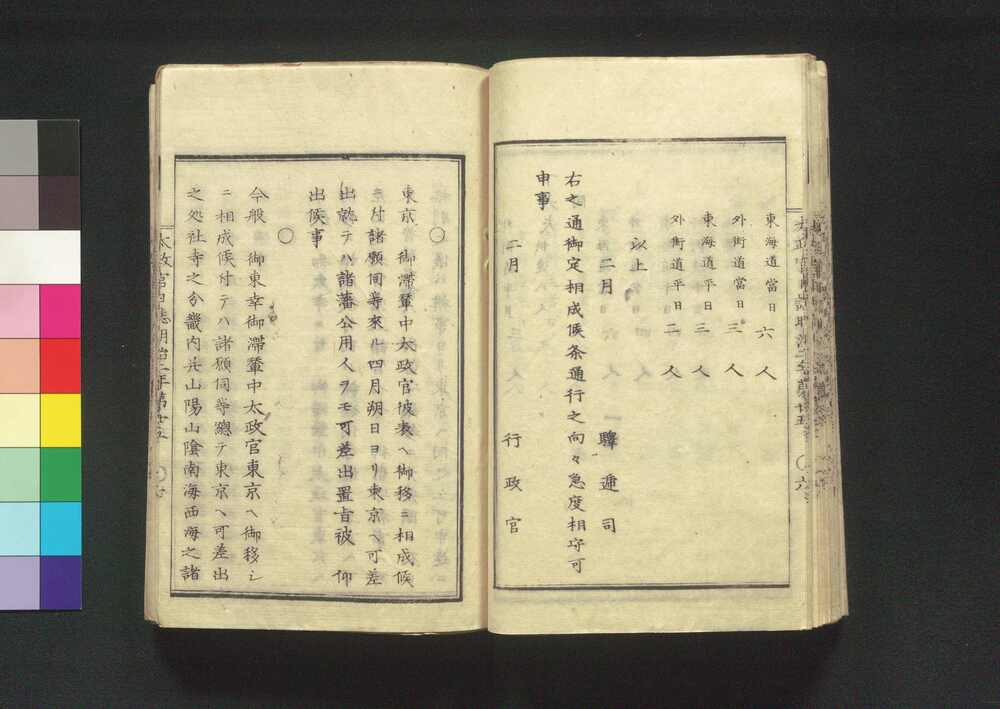 東海道當日六人
外街道當日三人
東海道平日三人
外街道平日二人
以上
二月　驛逓司
右之通御定相成候条通行之向々急度相守可
申事
二月　行政官
〇
東京　御滯輦中太政官彼表ヘ御移ニ相成候
ニ付諸願伺等來ル四月朔日ヨリ東京ヘ可差
出就テハ諸藩公用人ヲモ可差出置旨被　仰
出候事
〇
今般　御東幸御滯輦中太政官東京ヘ御移シ
ニ相成候付テハ諸願伺等總テ東京ヘ可差出
之処社寺之分畿内并山陽山陰南海西海之諸
太政官日誌明治二年第廿五
〇七
〇六